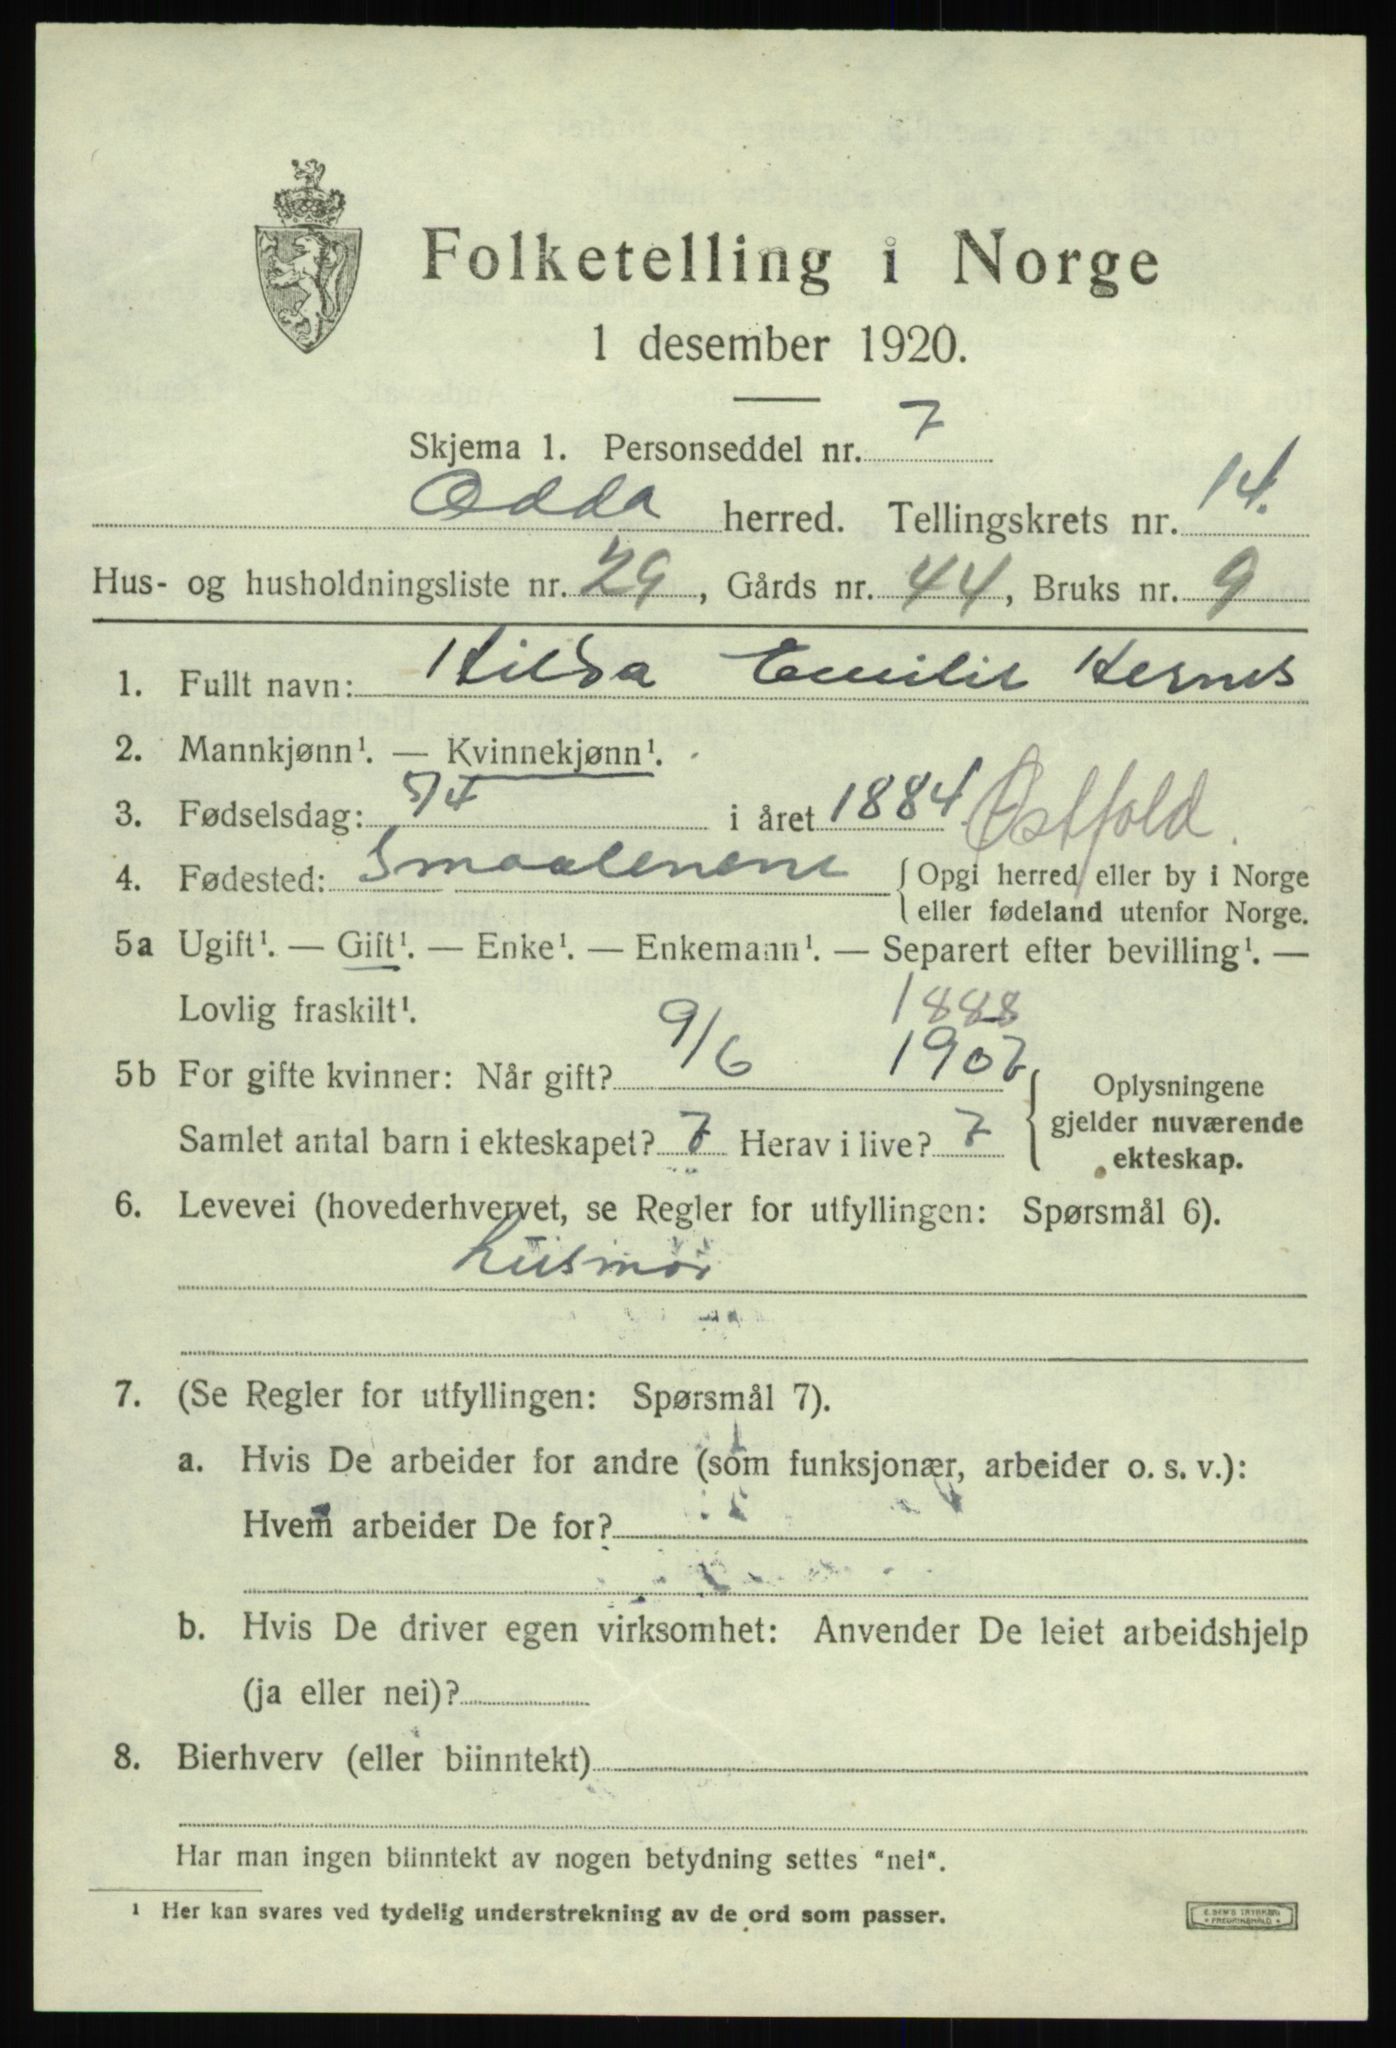 Folketelling i Norge
1 desember 1920.
Skjema 1. Personseddel nr. 7
Odda herred. Tellingskrets nr. 14.
Hus- og husholdningsliste nr. 29, Gårds nr. 44, Bruks nr. 9
1. Fullt navn: Hilda Emilie Hernes
2. Mannkjønn¹. — Kvinnekjønn¹.
3. Fødselsdag: 5/4 i året 1884. Østfold.
4. Fødested: Smaalenene { Opgi herred eller by i Norge
eller fødeland utenfor Norge.
5a Ugift¹. — Gift¹. — Enke¹. — Enkemann¹. — Separert efter bevilling¹. —
Lovlig fraskilt¹. 1888
5b For gifte kvinner: Når gift? 9/6 1907 { Oplysningene
gjelder nuværende
ekteskap.
Samlet antal barn i ekteskapet? 7 Herav i live? 7
6. Levevei (hovederhvervet, se Regler for utfyllingen: Spørsmål 6).
husmor
7. (Se Regler for utfyllingen: Spørsmål 7).
a. Hvis De arbeider for andre (som funksjonær, arbeider o. s. v.):
Hvem arbeider De for?
b. Hvis De driver egen virksomhet: Anvender De leiet arbeidshjelp
(ja eller nei)?
8. Bierhverv (eller biinntekt)
Har man ingen biinntekt av nogen betydning settes "nei".
¹ Her kan svares ved tydelig understrekning av de ord som passer.
E. SEM'S TRYKKERI
• FREDRIKSHALD •